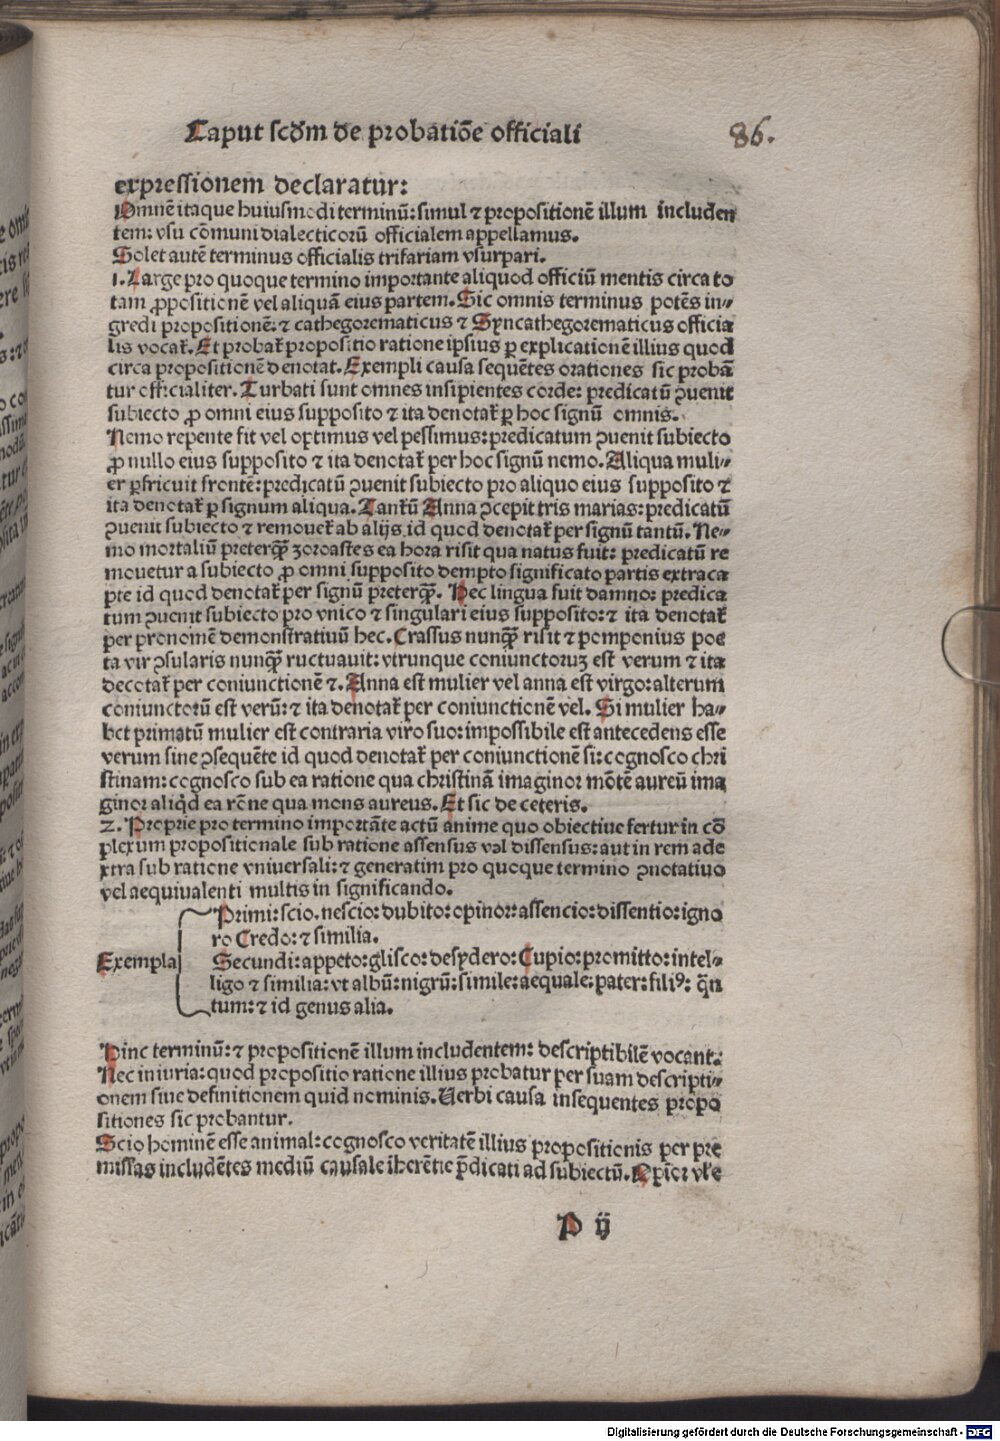 Caput scd̄m de probatiōe officiali
86.
expressionem declaratur:
Omnē itaque huiusmodi terminū: simul ⁊ propositionē illum includen
tem: vsu cōmuni dialecticorū officialem appellamus.
Solet autē terminus officialis trifariam vsurpari.
1. Large pro quoque termino importante aliquod officiū mentis circa to
tam ꝓpositionē vel aliquā eius partem. Sic omnis terminus potēs in⸗
gredi propositionē: ⁊ cathegorematicus ⁊ Syncathegorematicus officia
lis vocat̄. Et probat̄ propositio ratione ipsius ꝑ explicationē illius quod
circa propositionē denotat. Exempli causa sequētes orationes sic probā
tur officialiter. Turbati sunt omnes insipientes corde: predicatū ꝯuenit
subiecto ꝓ omni eius supposito ⁊ ita denotat̄ ꝑ hoc signū omnis.
Nemo repente fit vel optimus vel pessimus: predicatum ꝯuenit subiecto
ꝓ nullo eius supposito ⁊ ita denotat̄ per hoc signū nemo. Aliqua muli⸗
er ꝑfricuit frontē: predicatū ꝯuenit subiecto pro aliquo eius supposito ⁊
ita denotat̄ ꝑ signum aliqua. Tantū Anna ꝯcepit tris marias: predicatū
ꝯuenit subiecto ⁊ remouet̄ ab alijs. id quod denotat̄ per signū tantū. Ne⸗
mo mortaliū preterꝙ̄ zoroastes ea hora risit qua natus fuit: predicatū re
mouetur a subiecto ꝓ omni supposito dempto significato partis extraca
pte id quod denotat̄ per signū preterꝙ̄. Hec lingua fuit damno: predica
tum ꝯuenit subiecto pro vnico ⁊ singulari eius supposito: ⁊ ita denotat̄
per pronomē demonstratiuū hec. Crassus nunꝙ̄ risit ⁊ pomponius poe
ta vir ꝯsularis nunꝙ̄ ructuauit: vtrunque coniunctoruꝫ est verum ⁊ ita
decotat̄ per coniunctionē ⁊. Anna est mulier vel anna est virgo: alterum
coniunctorū est verū: ⁊ ita denotat̄ per coniunctionē vel. Si mulier ha⸗
bet primatū mulier est contraria viro suo: impossibile est antecedens esse
verum sine ꝯsequēte id quod denotat̄ per coniunctionē si: cognosco chri
stinam: cognosco sub ea ratione qua christinā imaginor mōtē aureū ima
ginor aliqd̄ ea rōne qua mons aureus. Et sic de ceteris.
2. Proprie pro termino importāte actū anime quo obiectiue fertur in cō
plexum propositionale sub ratione assensus vəl dissensus: aut in rem ade
xtra sub ratione vniuersali: ⁊ generatim pro quoque termino ꝯnotatiuo
vel aequiualenti multis in significando.
Primi: scio. nescio: dubito: opinor: assencio: dissentio: igno
ro Credo: ⁊ similia.
Exempla
Secundi: appeto: glisco: desydero: Cupio: promitto: intel⸗
ligo ⁊ similia: vt albū: nigrū: simile: aequale: pater: filiꝰ: q̄n
tum: ⁊ id genus alia.
Hinc terminū: ⁊ propositionē illum includentem: descriptibilē vocant.
Nec iniuria: quod propositio ratione illius probatur per suam descripti⸗
onem siue definitionem quid nominis. Verbi causa insequentes propo
sitiones sic probantur.
Scio hominē esse animal: cognosco veritatē illius propositionis per pre
missas includētes mediū causale īherētie p̄dicati ad subiectū.
P ij
Digitalisierung gefördert durch die Deutsche Forschungsgemeinschaft - DFG